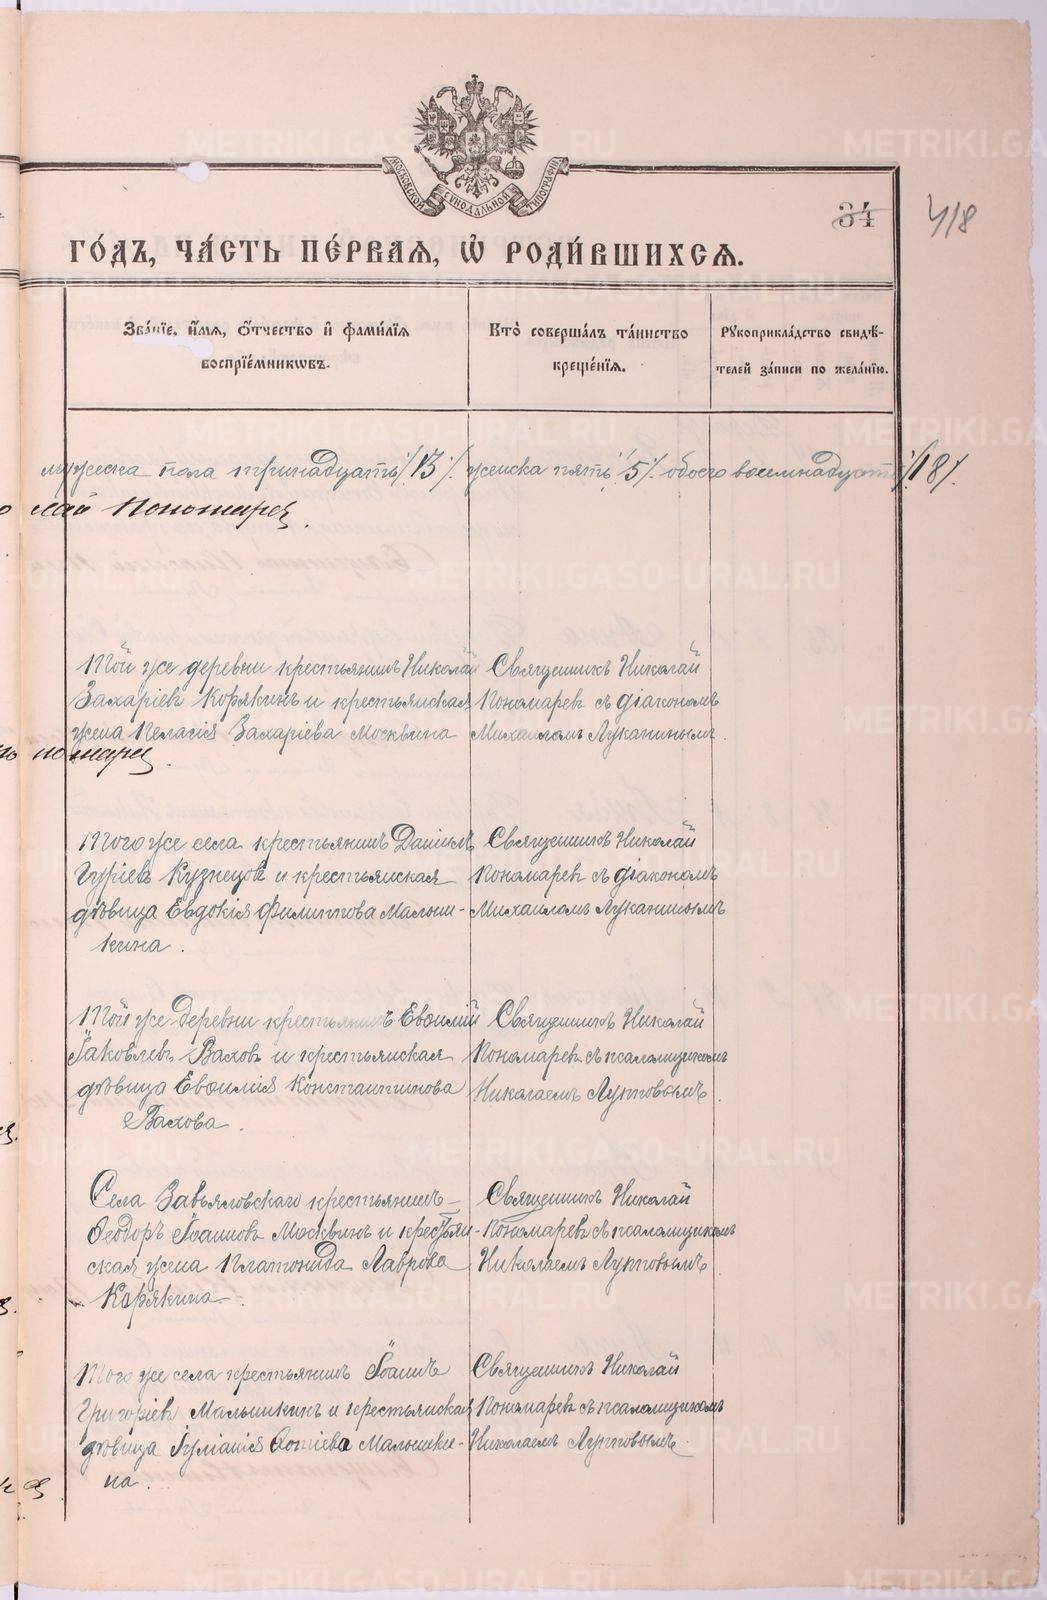 МОСКОВСКОЙ СѴНОДАЛЬНОЙ ТИПОГРАФІИ
34
418
ГО́ДЪ, ЧА́СТЬ ПЕ́РВАѦ, Ѡ҆ РОДИ́ВШИХСѦ.
Зва́нїе, и҆́мѧ, ѻ҆́тчество и҆ фами́лїѧ воспрїе́мникѡвъ.
Кто̀ соверша́лъ та́инство креще́нїѧ.
Рꙋкоприкла́дство свидѣ́телей за́писи по жела́нїю.
мужеска пола тринадцать /13/. женска пять /5/. обоего восемнадцать /18/.
лай Пономарев.
Той же деревни крестьянинъ Николай
Захаріевъ Корякинъ и крестьянская
жена Пелагія Захаріева Москвина
Священникъ Николай
Пономаревъ съ діакономъ
Михаиломъ Луканинымъ.
Того же села крестьянинъ Даніилъ
Гуріевъ Кузнецовъ и крестьянская
дѣвица Евдокія Филиппова Малыш-
кина.
Священникъ Николай
Пономаревъ съ діакономъ
Михаиломъ Луканинымъ
Той же деревни крестьянинъ Евѳимій
Іаковлевъ Ваховъ и крестьянская
дѣвица Евѳимія Константинова
Вахова.
Священникъ Николай
Пономаревъ съ псаломщикомъ
Николаемъ Лупповымъ.
Села Завьяловскаго крестьянинъ
Ѳеодоръ Іоанновъ Москвинъ и крестьян-
ская жена Платонида Лаврова
Корякина.
Священникъ Николай
Пономаревъ съ псаломщикомъ
Николаемъ Лупповымъ
Того же села крестьянинъ Іоаннъ
Григоріевъ Малышкинъ и крестьянская
дѣвица Іуліанія Фотіева Малышки-
на.
Священникъ Николай
Пономаревъ съ псаломщикомъ
Николаемъ Лупповымъ.
METRIKI.GASO-URAL.RU